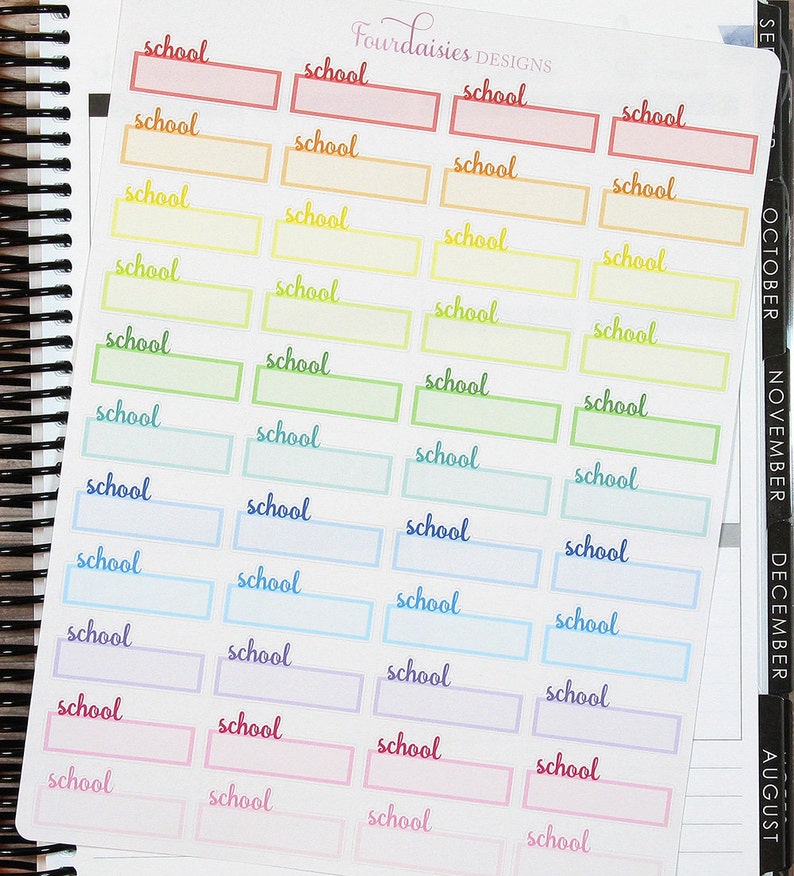 Fourdaisies DESIGNS
school school school school
school school school school
school school school school
school school school school
school school school school
school school school school
school school school school
school school school school
school school school school
school school school school
school school school school
OCTOBER
NOVEMBER
DECEMBER
AUGUST